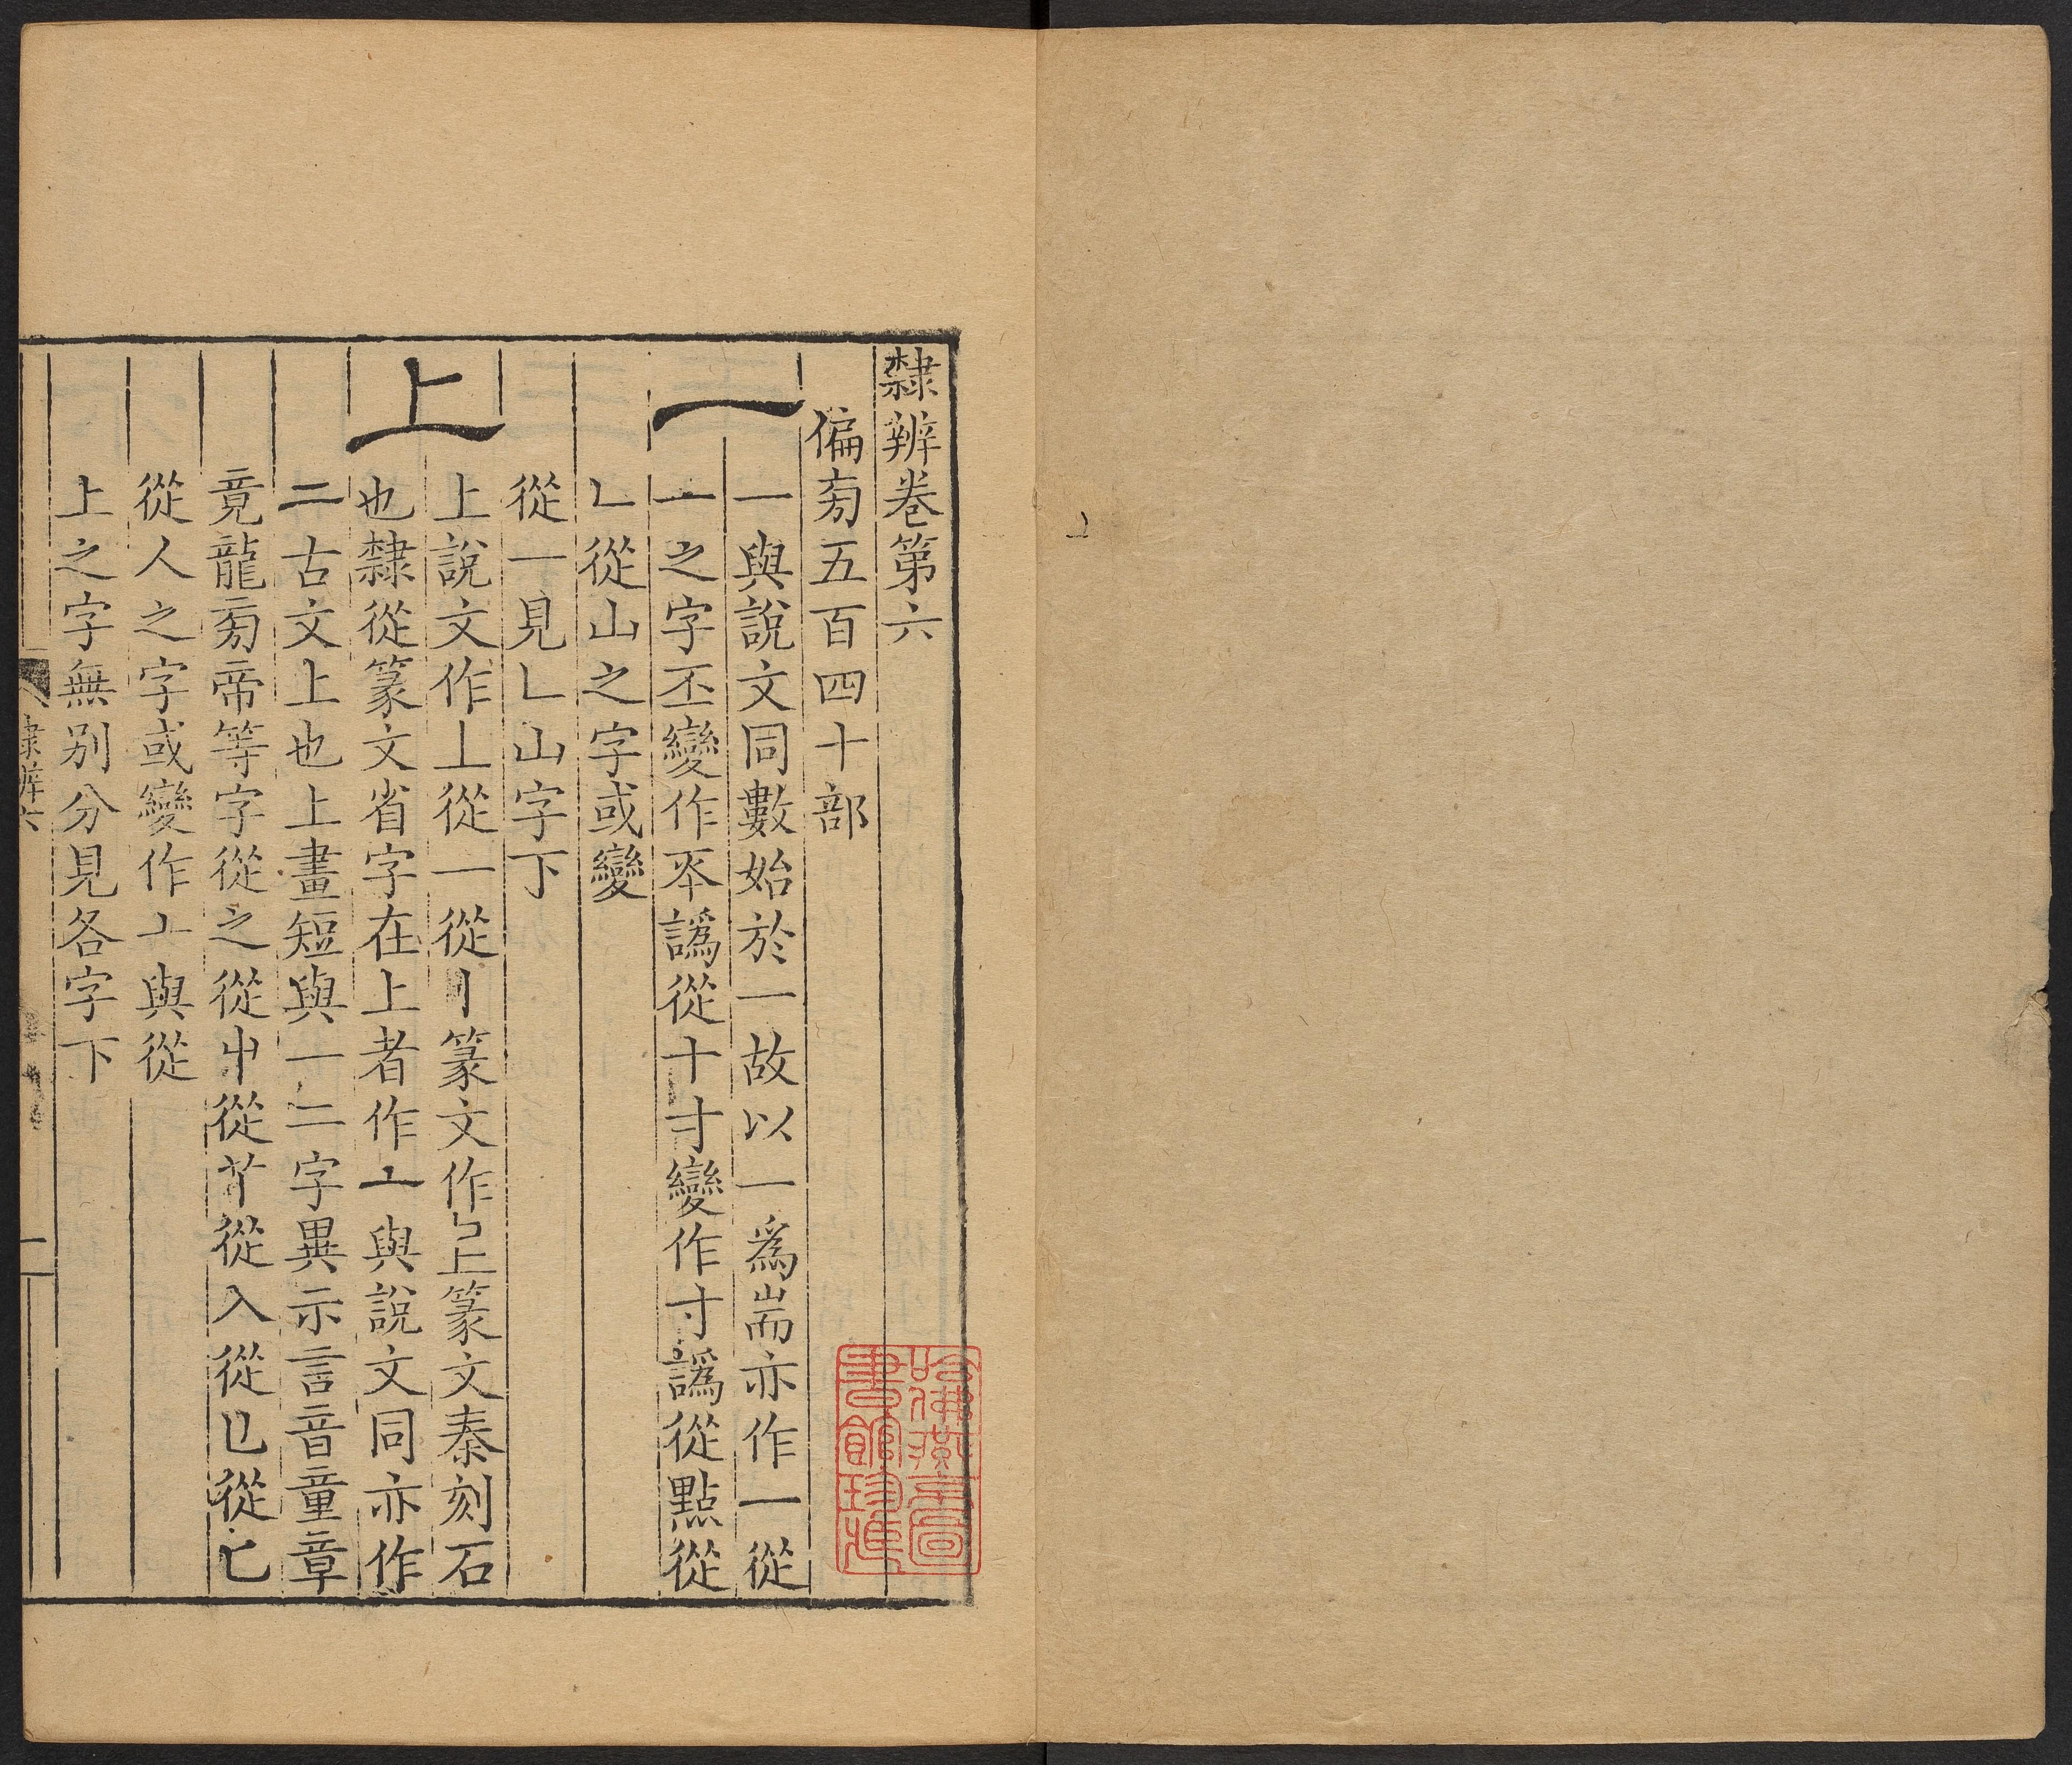 隸辨卷第六
偏䄃五百四十部
一
一與說文同數始於一故以一爲耑亦作一從
一之字丕變作㔻譌從十寸變作寸譌從點從
乚從山之字或變
從一見乚山字下
上
上說文作丄從一從丨篆文作𠄞篆文秦刻石
也隸從篆文省字在上者作亠與說文同亦作
二古文上也上畫短與一二字異示言音童章
竟龍㫄帝等字從之從中從䒑從入從㔾從亡
從人之字或變作亠與從
上之字無別分見各字下
隸辨六
一
哈佛燕京圖
書館珍藏